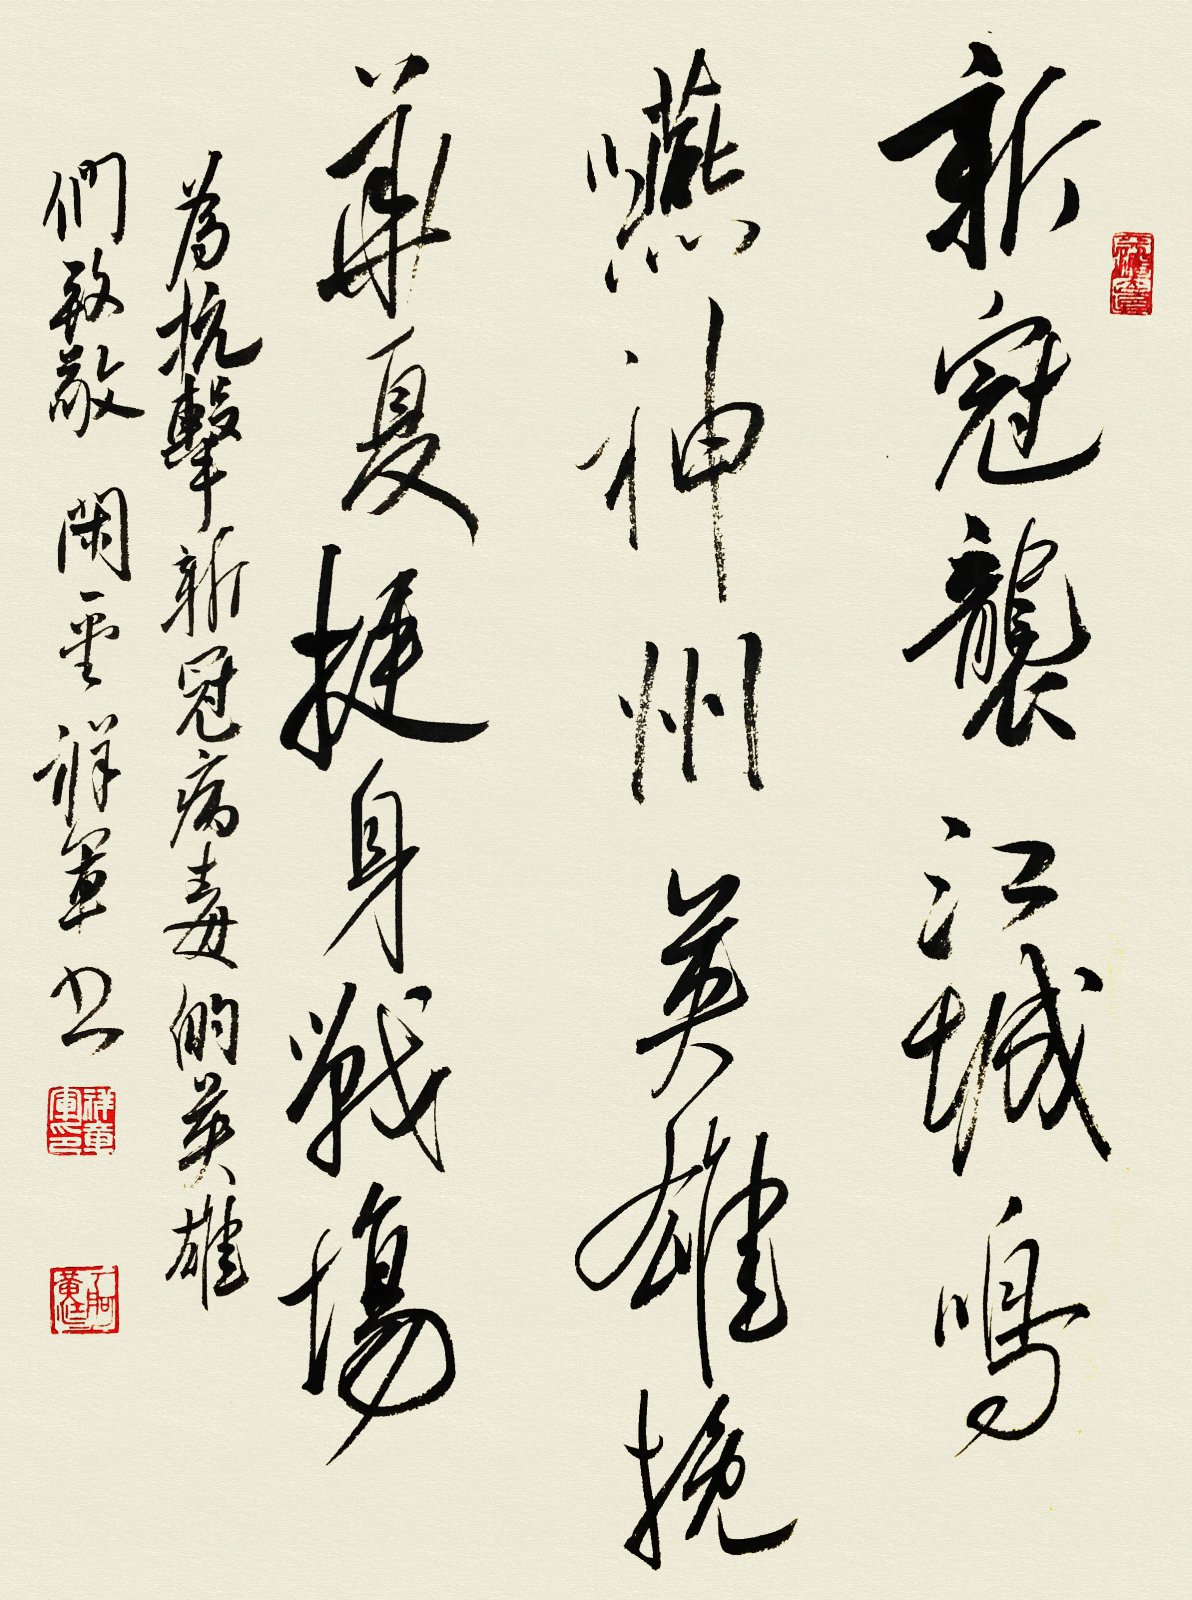 新冠襲江城鳴
嚥神州英雄挽
華夏挺身戰場
為抗擊新冠病毒的英雄
們致敬 閑雲祥軍书